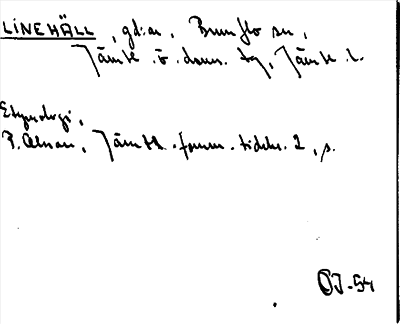 LINEHÄLL, gd:ar, Brunflo sn,
Jämtl. ö. doms. tg, Jämtl. l.
Etymologi,
P. Olsson, Jämtl. fornm. tidskr. 2, s.
OJ-54